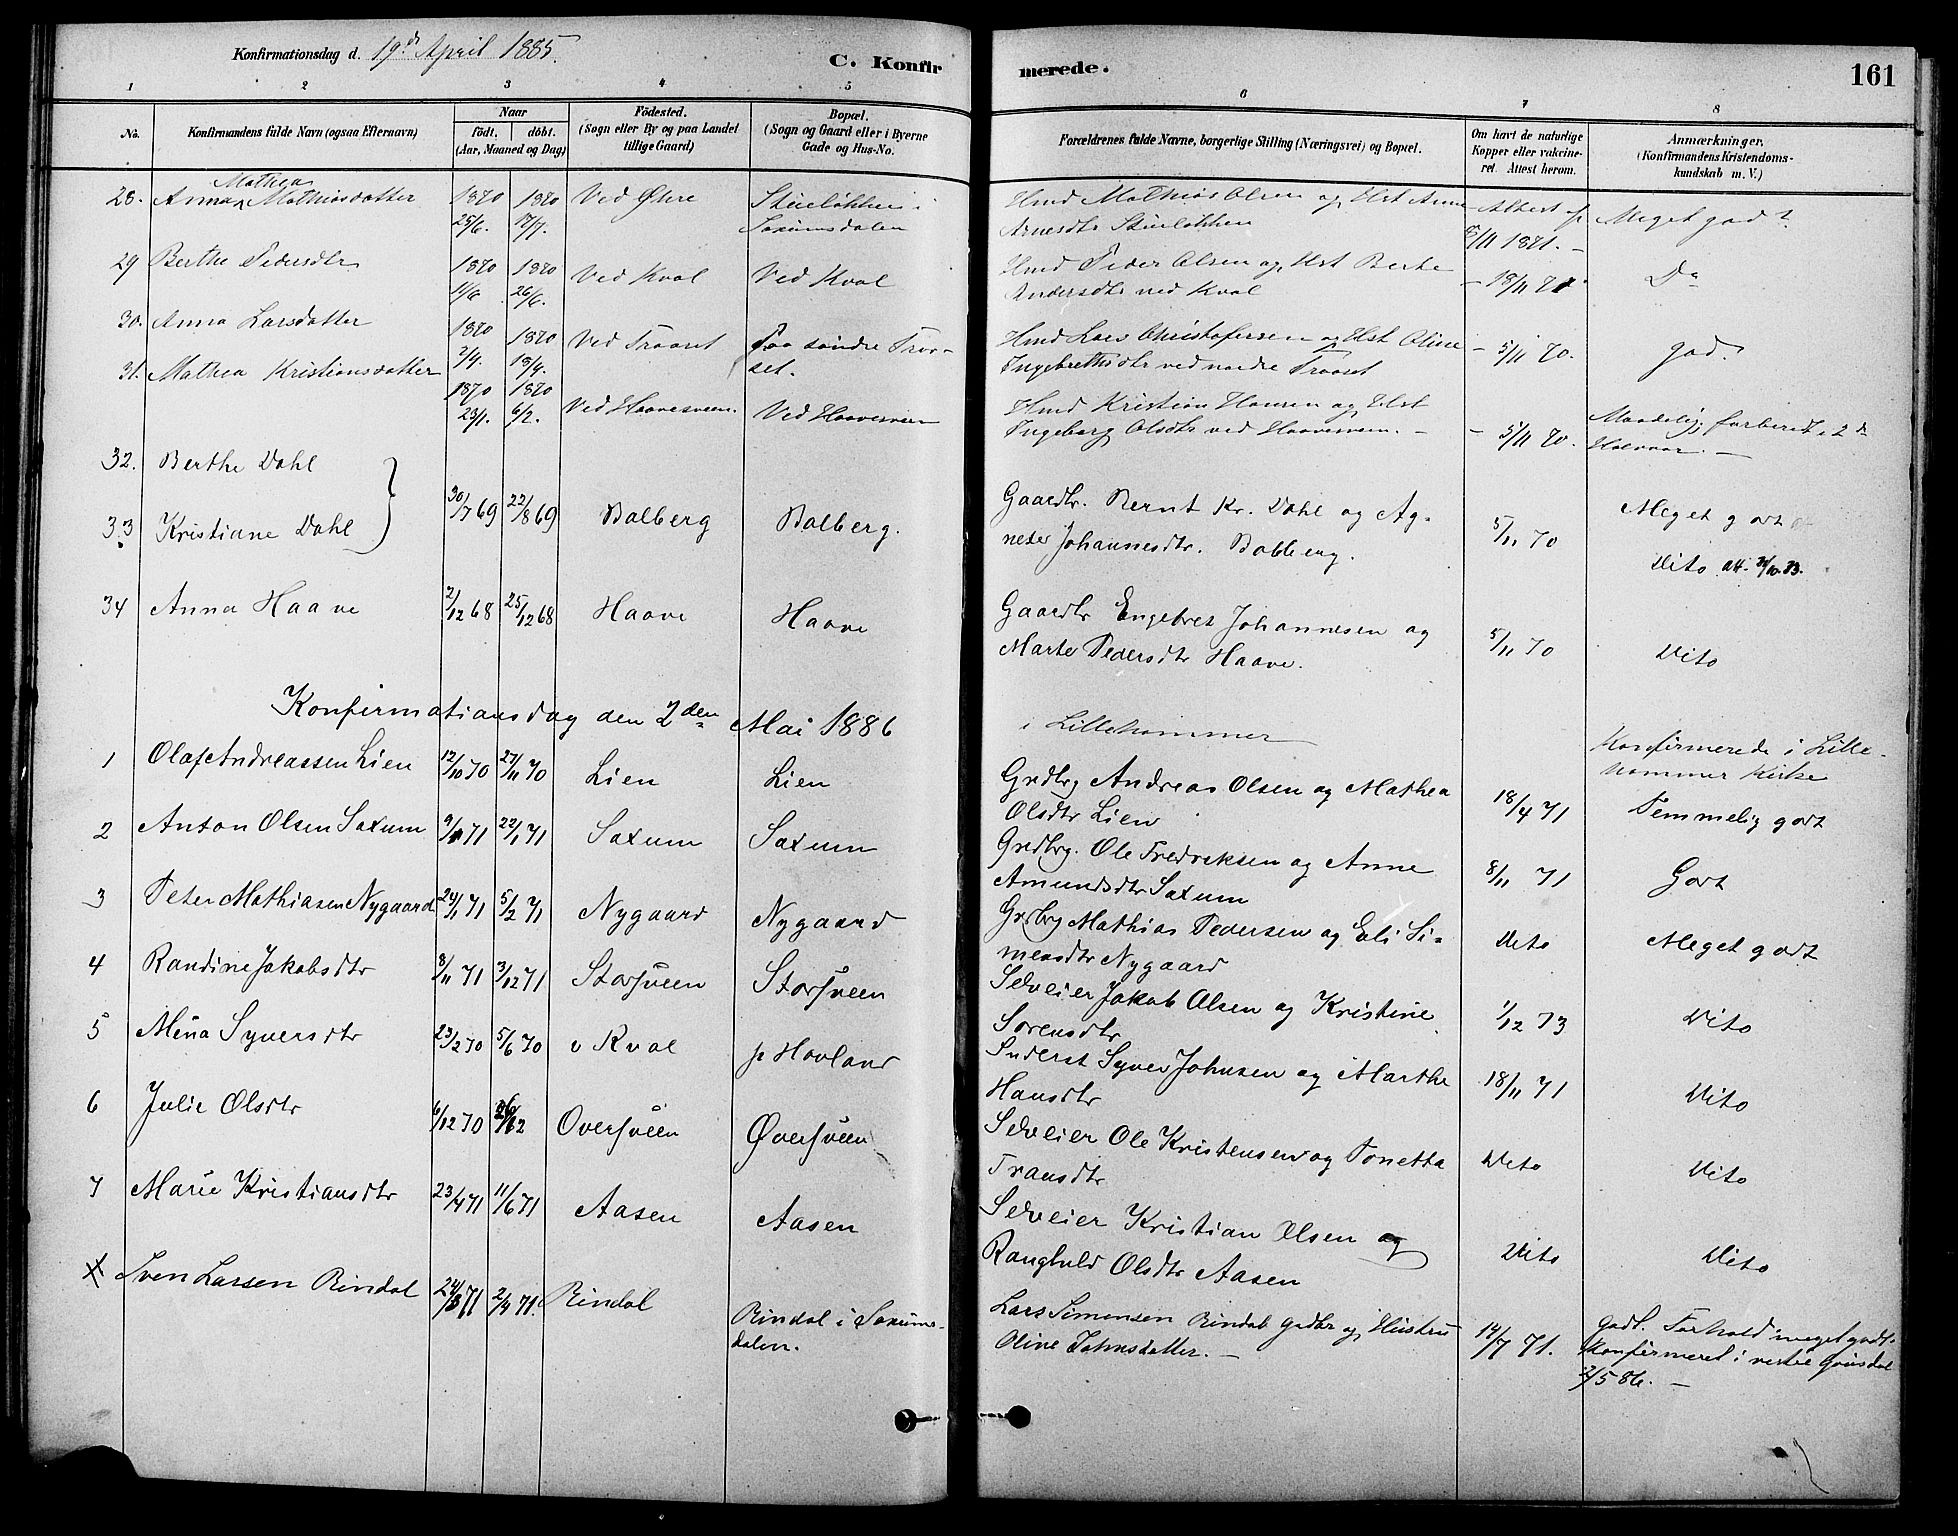 Konfirmationsdag d. 19de April 1885.
C. Konfirmerede.
161
1 2 3 4 5 6 7 8
No.
Konfirmandens fulde Navn (ogsaa Efternavn)
Naar
födt. döbt.
(Aar, Maaned og Dag)
Födested.
(Sogn eller By og paa Landet
tillige Gaard)
Bopæl.
(Sogn og Gaard eller i Byerne
Gade og Hus-No.
Forældrenes fulde Navne, borgerlige Stilling (Næringsvei) og Bopæl.
Om havt de naturlige
Kopper eller vakcine-
ret. Attest herom.
Anmærkninger,
(Konfirmandens Kristendoms-
kundskab m. V.)
28. Anna Mathea Mathiasdatter 1870 25/6. 1870 17/7. Ved Øhre
Saxumsdalen
Hmd Mathias Olsen og Hst Anne
Arnesdtr
8/11 1871. - Meget godt
29 Berthe Pedersdtr 1870 11/6 1870 26/6. Ved Kval Ved Kval
Hmd Peder Olsen og Hst Berte
Andersdtr ved Kval - 18/11 71 Do
30. Anna Larsdatter 1870 2/4. 1870 18/4. Ved Traaset Paa söndre Traa-
set.
Hmd Lars Christofersen og Hst Oline
Ingebretsdtr ved nordre Traaset - 5/11 70. god.
31. Mathea Kristiansdatter 1870 23/1. 1870 6/2. Ved Haavesveen. Ved Haavesveen
Hmd Kristian Hansen og Hst
Ingeborg Olsdtr ved Haavesveen. - - 5/11 70. Maadelig, forberedt i 2de
Halvaar. -
32. Berthe Dahl
33 Kristiane Dahl
30/7 69 22/8 69 Balberg Balberg.
Gaardbr. Bernt Kr. Dahl og Ag-
nete Johannesdtr. Balberg. 5/11 70 Meget godt
Dito
34 Anna Haave 2/12 68 25/12 68 Haave Haave
Gaardbr Engebret Johannesen og
Marte Pedersdtr Haave. 5/11 70 Dito
Konfirmationsdag den 2den Mai 1886 i Lillehammer
Konfirmerede i Lille-
hammer Kirke
1 Olaf Andreassen Lien 12/10 70 27/11 70 Lien Lien
Grdbrg Andreas Olsen og Mathea
Olsdtr Lien 18/4 71 Temmelig godt
2 Anton Olsen Saxum 9/1 71 22/1 71 Saxum Saxum
Grdbrg. Ole Fredriksen og Anne
Amundsdtr Saxum 8/11 71 Godt
3 Peter Mathiasen Nygaard 24/1 71 5/2 71 Nygaard Nygaard
Grdbrg Mathias Pedersen og Eli Si-
mensdtr Nygaard Dito Meget godt
4 Randine Jakobsdtr 8/11 71 3/12 71 Storsveen Storsveen
Selveier Jakob Olsen og Kristine
Sorensdtr 1/12 73 Dito
5 Mina Syversdtr 23/2 70 5/6 70 v Kval p Hovland
Inderst Syver Johnsen og Marthe
Hansdtr 18/11 71 Dito
6 Julie Olsdtr 6/12 70 Oversveen Øversveen
Selveier Ole Kristensen og Tonetta
Fransdtr Dito Dito
7 Marie Kristiansdtr 23/4 71 11/6 71 Aasen Aasen
Selveier Kristian Olsen og
Ranghild Olsdtr Aasen Dito Dito
Sven Larsen Rindal 24/3 71 2/4 71. Rindal Rindal i Saxums-
dalen.
Lars Simensen Rindal gadbr og Hustru
Oline Johnsdatter. - 14/7 71. godt. Forhold meget godt.
Konfirmeret i vestre Gausdal
2/5 86. -